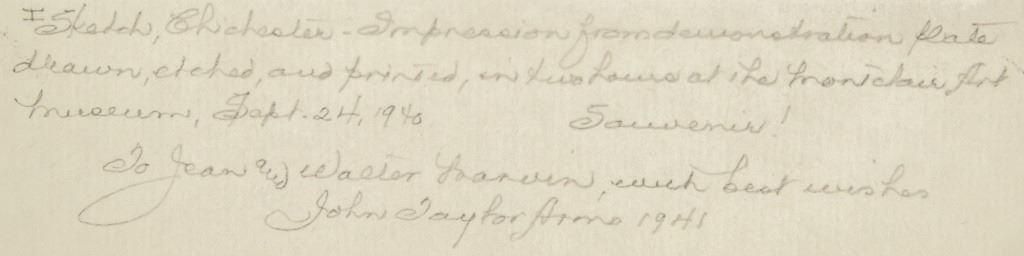 I Sketch, Chichester - Impression from demonstration plate
drawn, etched, and printed, in two hours at the Montclair Art
Museum, Sept. 24, 1940 Souvenir!
To Jean and Walter Marvin, with best wishes
John Taylor Arms 1941